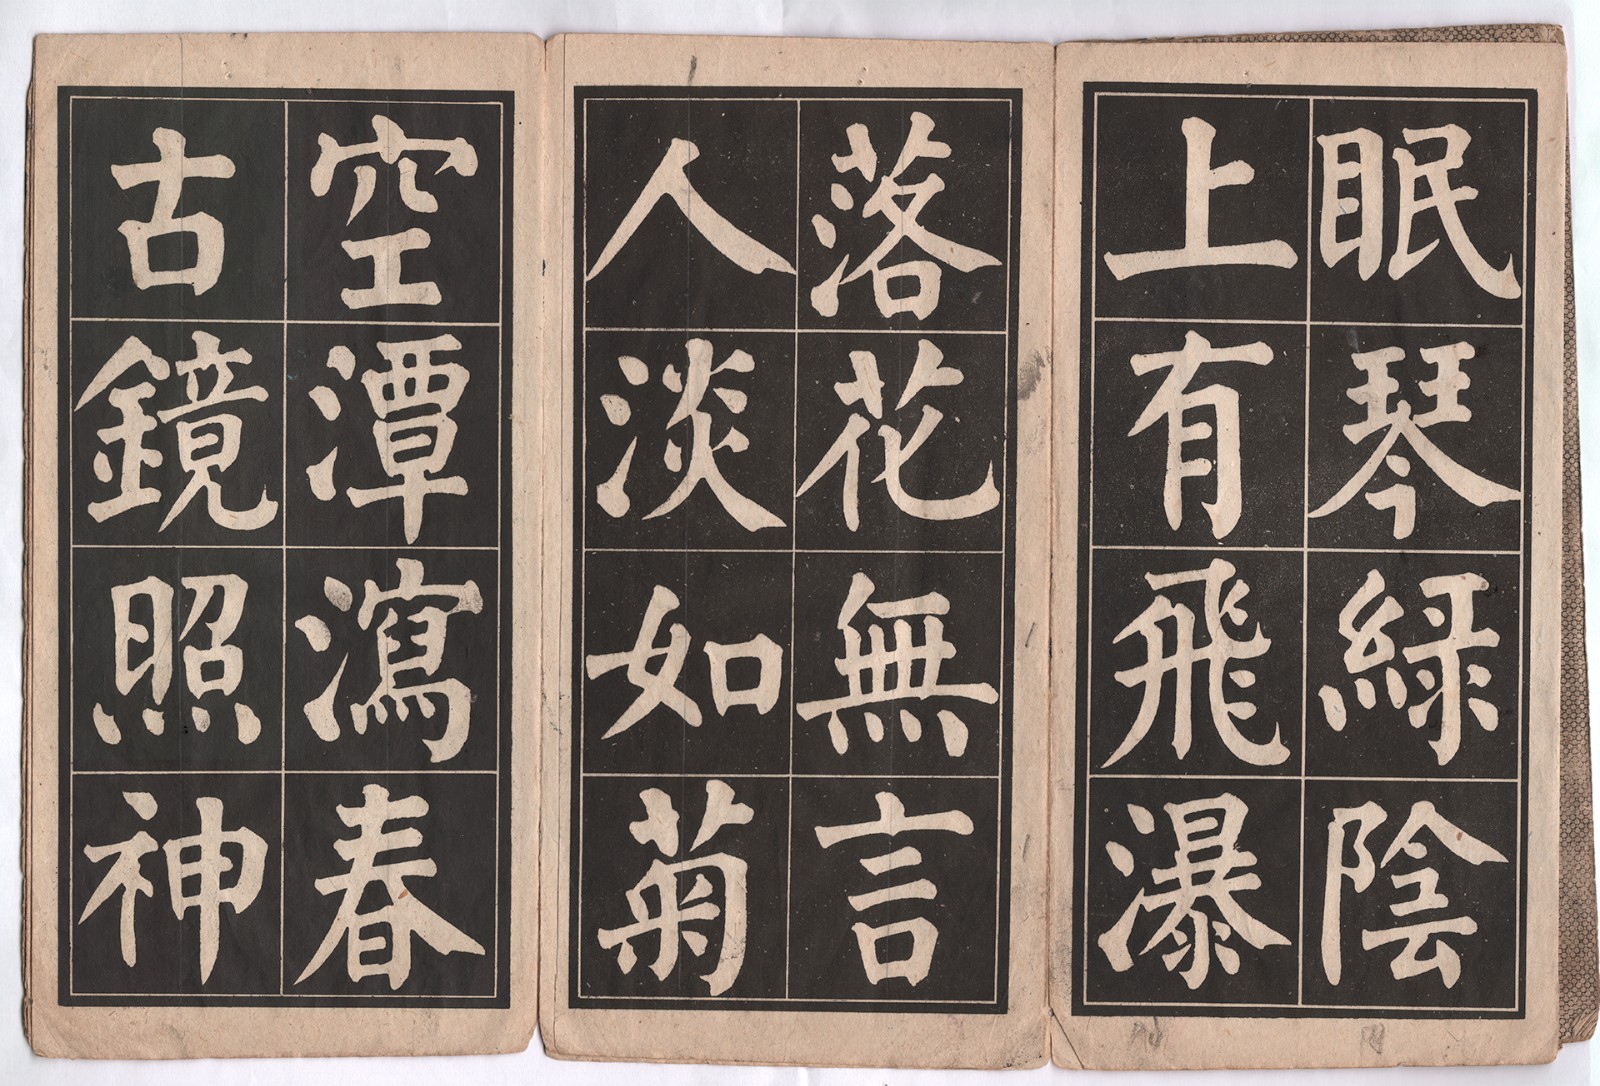 眠琴綠陰
上有飛瀑
落花無言
人淡如菊
空潭瀉春
古鏡照神